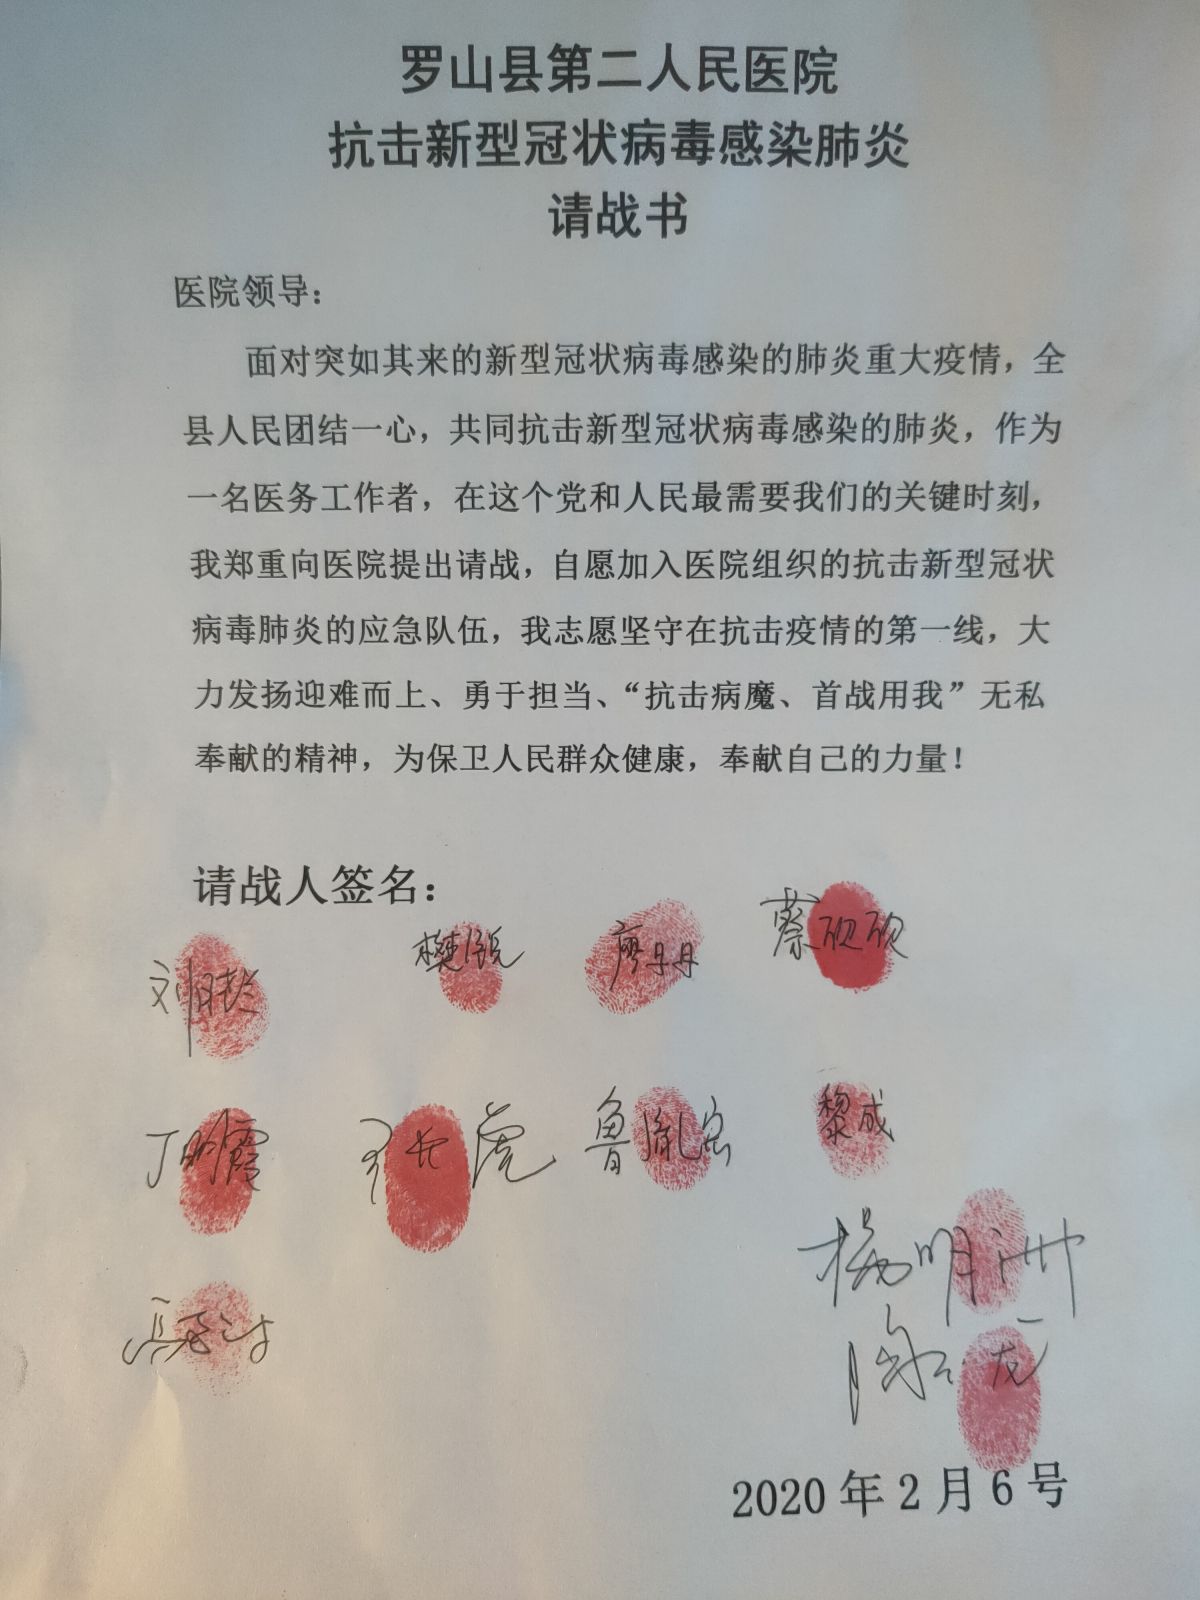 罗山县第二人民医院
抗击新型冠状病毒感染肺炎
请战书
医院领导：
面对突如其来的新型冠状病毒感染的肺炎重大疫情，全
县人民团结一心，共同抗击新型冠状病毒感染的肺炎，作为
一名医务工作者，在这个党和人民最需要我们的关键时刻，
我郑重向医院提出请战，自愿加入医院组织的抗击新型冠状
病毒肺炎的应急队伍，我志愿坚守在抗击疫情的第一线，大
力发扬迎难而上、勇于担当、“抗击病魔、首战用我”无私
奉献的精神，为保卫人民群众健康，奉献自己的力量！
请战人签名：
廖丹丹 蔡欣欣
丁明霞 黎成
杨明洲
2020年2月6号